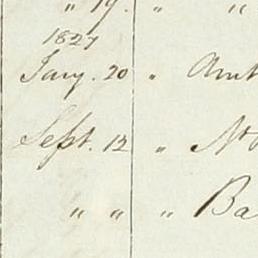 " 19. " "
1827
Jany. 20 " Amt
Sept. 12 " No
" " " Ba